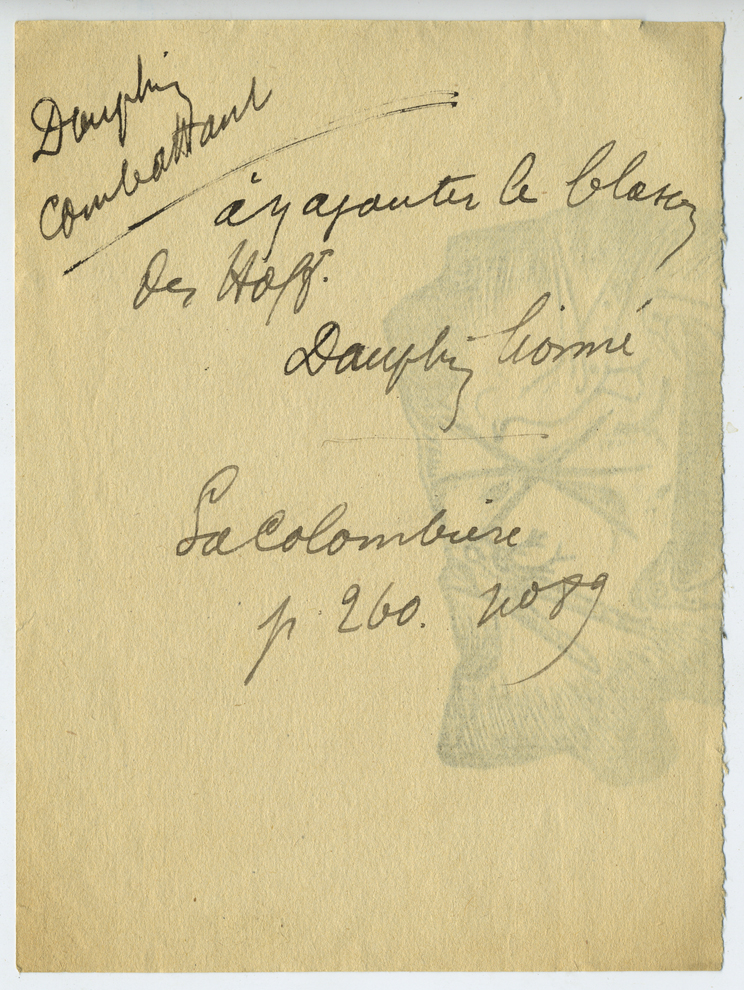 Dauphin
combattant
à y ajouter le blason
des Hoff.
Dauphin lionné
La Colombière
p. 260. no 89